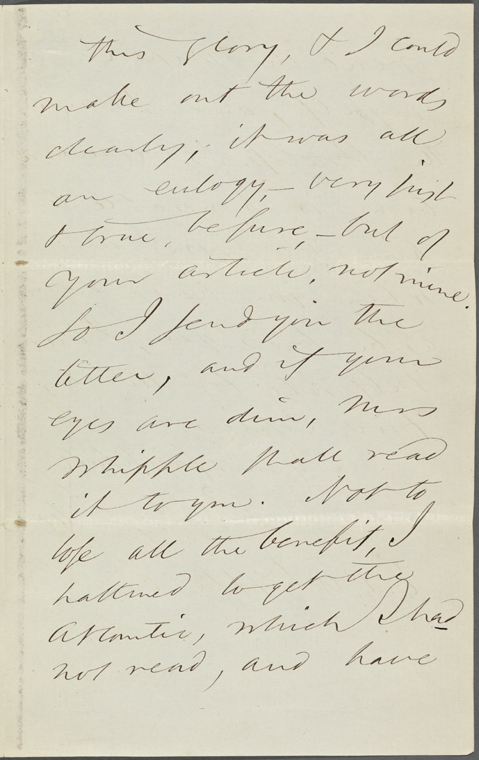 this glory, & I could
make out the words
clearly, it was all
an eulogy, – very just
& true, besure, – but of
your article, not mine.
So I send you the
letter, and if your
eyes are dim, Mrs
Whipple shall read
it to you. Not to
lose all the benefit, I
hastened to get the
Atlantic, which I had
not read, and have